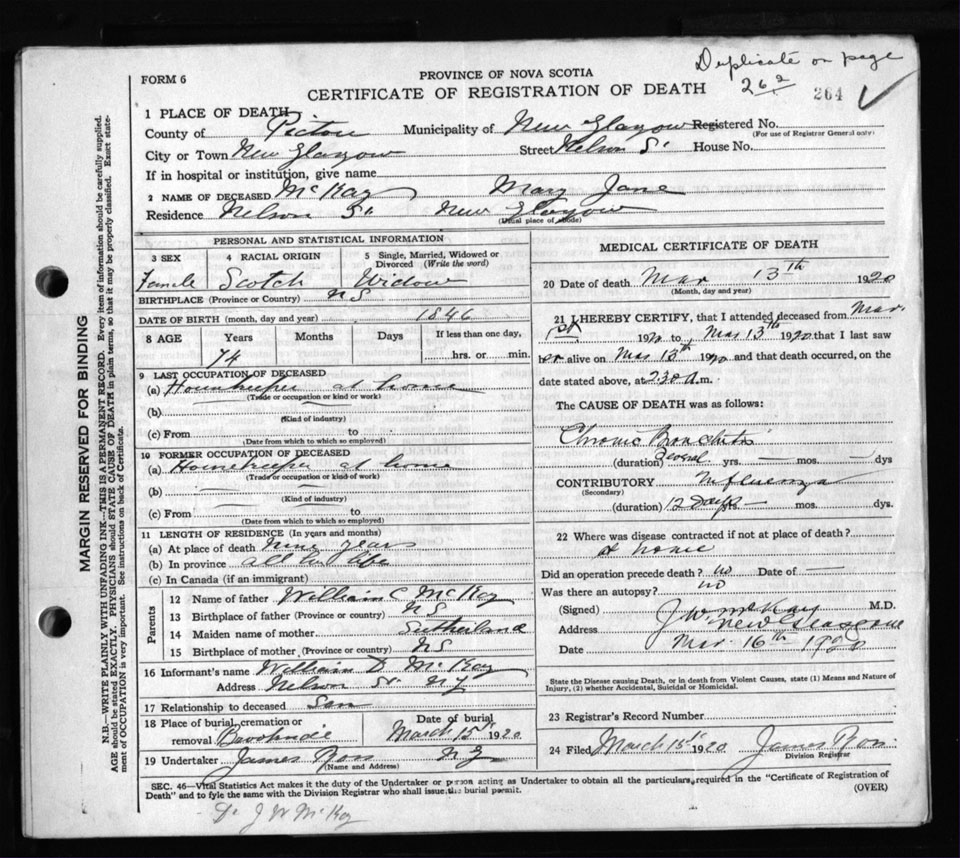 Duplicate on page
262
264
FORM 6
PROVINCE OF NOVA SCOTIA
CERTIFICATE OF REGISTRATION OF DEATH
1 PLACE OF DEATH
County of Pictou Municipality of New Glasgow Registered No.
(For use of Registrar General only)
City or Town New Glasgow Street Nelson St House No.
If in hospital or institution, give name
2 NAME OF DECEASED McKay Mary Jane
Residence Nelson St New Glasgow
(Usual place of abode)
MARGIN RESERVED FOR BINDING
N.B.—WRITE PLAINLY WITH UNFADING INK—THIS IS A PERMANENT RECORD. Every item of information should be carefully supplied.
AGE should be stated EXACTLY. PHYSICIANS should STATE CAUSE OF DEATH in plain terms, so that it may be properly classified. Exact state-
ment of OCCUPATION is very important. See instructions on back of Certificate.
PERSONAL AND STATISTICAL INFORMATION
3 SEX
Female
4 RACIAL ORIGIN
Scotch
5 Single, Married, Widowed or
Divorced (Write the word)
Widow
BIRTHPLACE (Province or Country) NS
DATE OF BIRTH (month, day and year) 1846
8 AGE Years Months Days If less than one day,
74 hrs. or min.
9 LAST OCCUPATION OF DECEASED
(a) Housekeeper at home
(Trade or occupation or kind of work)
(b)
(Kind of industry)
(c) From to
(Date from which to which so employed)
10 FORMER OCCUPATION OF DECEASED
(a) Housekeeper at home
(Trade or occupation or kind of work)
(b)
(Kind of industry)
(c) From to
(Date from which to which so employed)
11 LENGTH OF RESIDENCE (In years and months)
(a) At place of death nine years
(b) In province all her life
(c) In Canada (if an immigrant)
Parents
12 Name of father William C McKay
13 Birthplace of father (Province or country) NS
14 Maiden name of mother Sutherland
15 Birthplace of mother (Province or country) NS
16 Informant's name William D McKay
Address Nelson St N G
17 Relationship to deceased Son
18 Place of burial, cremation or
removal
Date of burial
March 15th 1920
19 Undertaker James Ross N G
(Name and Address)
MEDICAL CERTIFICATE OF DEATH
20 Date of death Mar 13th 1920
(Month, day and year)
21 I HEREBY CERTIFY, that I attended deceased from Mar.
1st 1920 to Mar 13th 1920 that I last saw
her alive on Mar 13th 1920 and that death occurred, on the
date stated above, at 2.30 A.m.
The CAUSE OF DEATH was as follows:
Chronic Bronchitis
(duration) Several yrs. — mos. — dys
CONTRIBUTORY Influenza
(Secondary)
(duration) 12 Days yrs. mos. dys.
22 Where was disease contracted if not at place of death?
at home
Did an operation precede death? no Date of —
Was there an autopsy? no
(Signed) J W McKay M.D.
Address New Glasgow
Date Mar 16th 1920
State the Disease causing Death, or in death from Violent Causes, state (1) Means and Nature of
Injury, (2) whether Accidental, Suicidal or Homicidal.
23 Registrar's Record Number
24 Filed March 15th 1920 James Ross
Division Registrar
SEC. 46—Vital Statistics Act makes it the duty of the Undertaker or person acting as Undertaker to obtain all the particulars required in the "Certificate of Registration of
Death" and to fyle the same with the Division Registrar who shall issue the burial permit.
(OVER)
Dr J W McKay